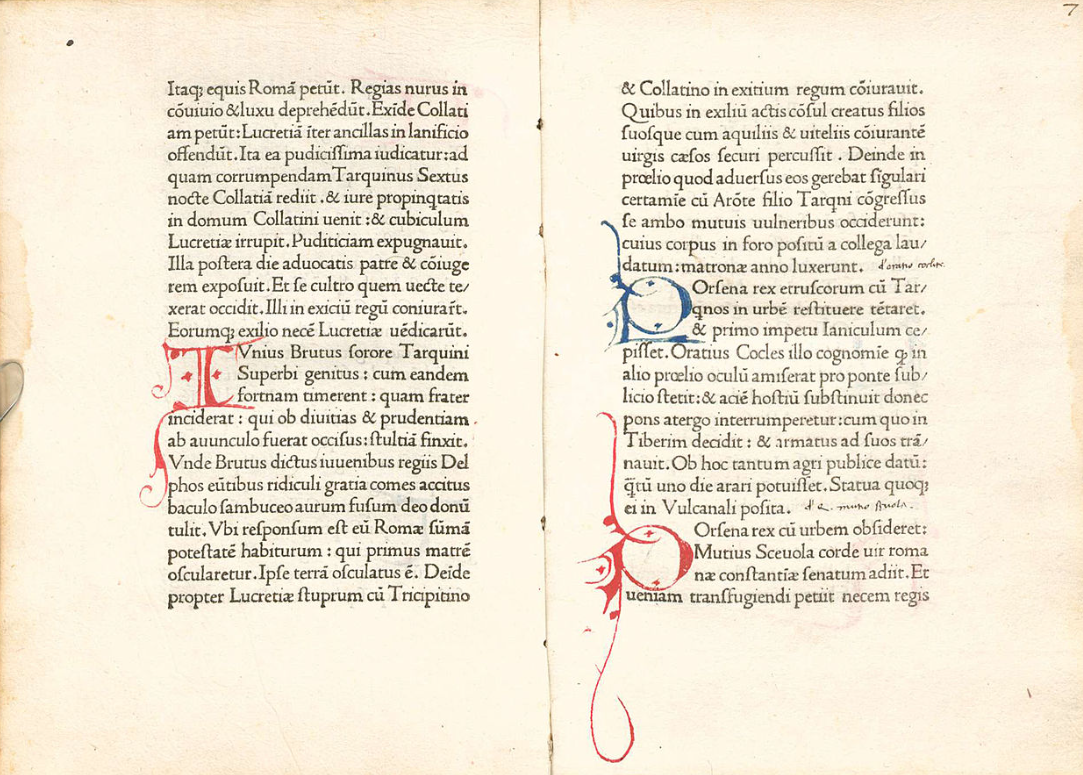 Itaqꝫ equis Romā petūt. Regias nurus in
cōuiuio & luxu deprehēdūt. Exīde Collati
am petūt: Lucretiā īter ancillas in lanificio
offendūt. Ita ea pudiciſſima iudicatur: ad
quam corrumpendam Tarquinus Sextus
nocte Collatiā rediit. & iure propinqtatis
in domum Collatini uenit: & cubiculum
Lucretiæ irrupit. Puditiciam expugnauit.
Illa poſtera die aduocatis patre & cōiuge
rem expoſuit. Et ſe cultro quem ueſte te/
xerat occidit. Illi in exiciū regū coniurar̄t.
Eorumqꝫ exilio necē Lucretiæ uēdicarūt.
IVnius Brutus ſorore Tarquini
Superbi genitus: cum eandem
fortnam timerent: quam frater
inciderat: qui ob diuitias & prudentiam
ab auunculo fuerat occiſus: ſtultiā finxit.
Vnde Brutus dictus iuuenibus regiis Del
phos eūtibus ridiculi gratia comes accitus
baculo ſambuceo aurum fuſum deo donū
tulit. Vbi reſponſum eſt eū Romæ ſūmā
poteſtatē habiturum: qui primus matrē
oſcularetur. Ipſe terrā oſculatus ē. Deīde
propter Lucretiæ ſtuprum cū Tricipitino
7
& Collatino in exitium regum cōiurauit.
Quibus in exiliū actis cōſul creatus filios
ſuoſque cum aquiliis & uiteliis cōiurantē
uirgis cæſos ſecuri percuſſit. Deinde in
prœlio quod aduerſus eos gerebat ſīgulari
certamīe cū Arōte filio Tarqni cōgreſſus
ſe ambo mutuis uulneribus occiderunt:
cuius corpus in foro poſitū a collega lau/
datum: matronæ anno luxerunt. d'oratio coclite
POrſena rex etruſcorum cū Tar/
qnos in urbē reſtituere tētaret.
& primo impetu Ianiculum ce/
piſſet. Oratius Cocles illo cognomīe qꝫ in
alio prœlio oculū amiſerat pro ponte ſub/
licio ſtetit: & aciē hoſtiū ſubſtinuit donec
pons atergo interrumperetur: cum quo in
Tiberim decidit: & armatus ad ſuos trā/
nauit. Ob hoc tantum agri publice datū:
q̄tū uno die arari potuiſſet. Statua quoqꝫ
ei in Vulcanali poſita. d' Q. mutio ſcuola.
POrſena rex cū urbem obſideret:
Mutius Sceuola corde uir roma
næ conſtantīæ ſenatum adiit. Et
ueniam tranſfugiendi petiit necem regis